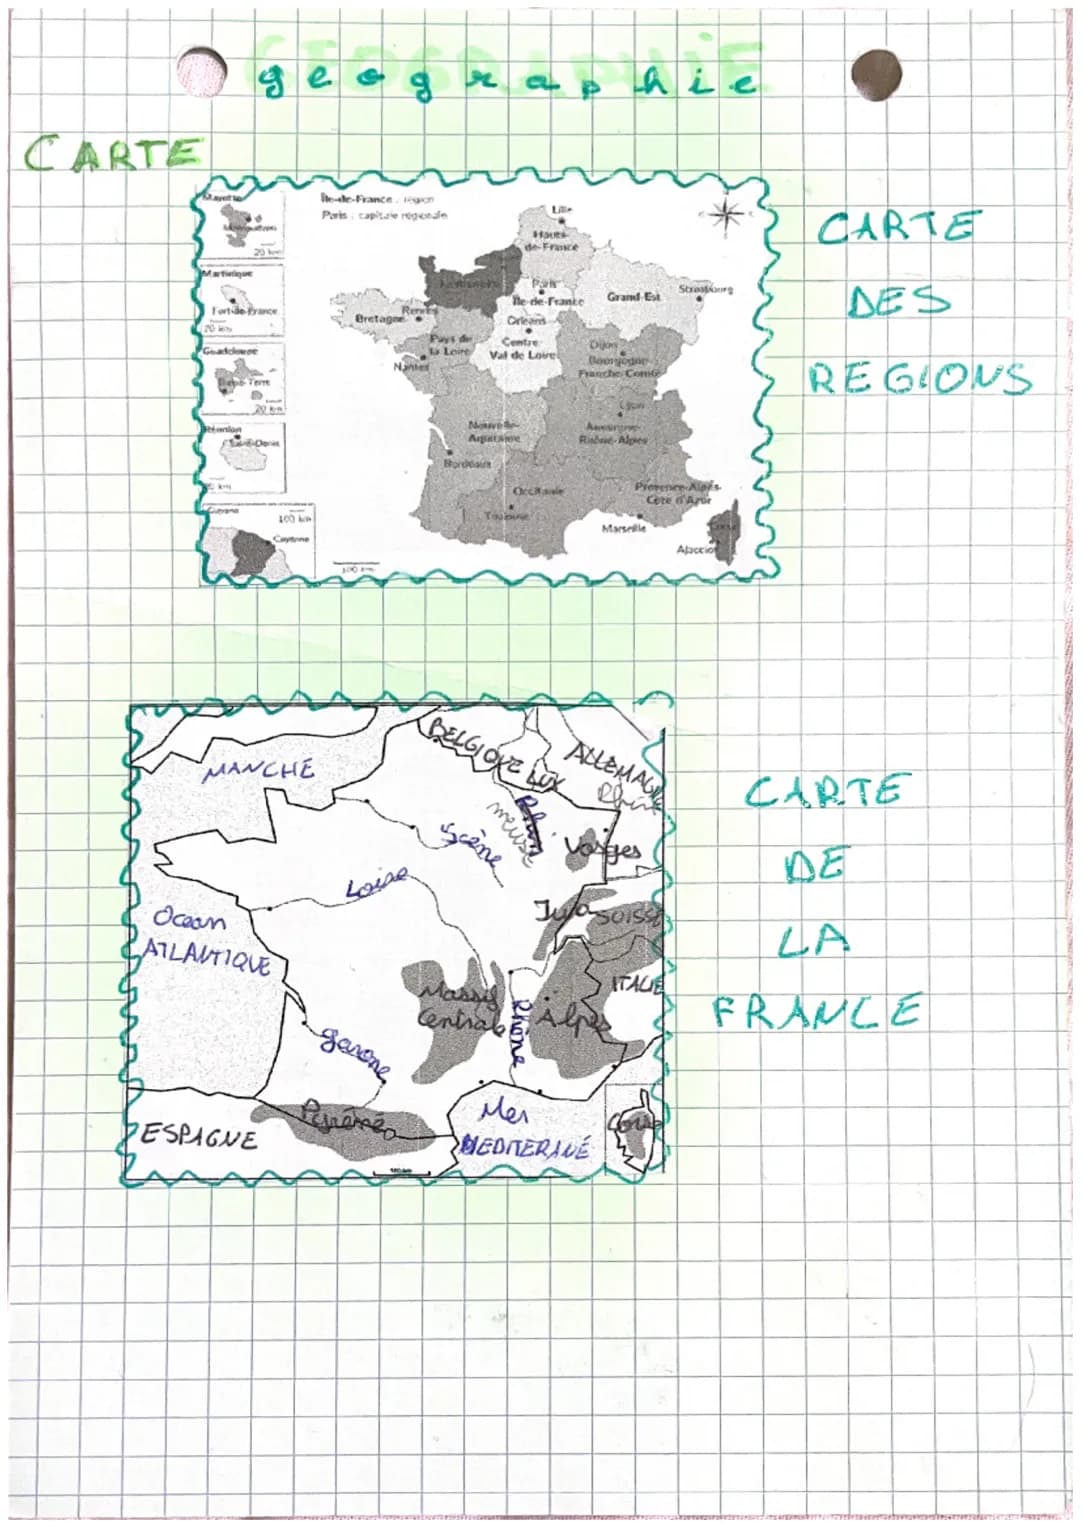 GEOGRAPHIE
geographie
CARTE
Mayotte
20 km
Martinique
Fort-de-France
20 km
Guadeloupe
Basse-Terre
20 km
Réunion
Saint-Denis
km
Guyane
100 km
Cayenne
Île-de-France : région
Paris : capitale régionale
Lille
Hauts-
de-France
Normandie
Paris
Île-de-France
Grand-Est
Strasbourg
Rennes
Bretagne
Orléans
Centre
Val de Loire
Pays de
la Loire
Nantes
Dijon
Bourgogne-
Franche-Comté
Lyon
Auvergne-
Rhône-Alpes
Nouvelle-
Aquitaine
Bordeaux
Occitanie
Toulouse
Provence-Alpes-
Côte d'Azur
Marseille
Corse
Ajaccio
100 km
CARTE
DES
REGIONS
MANCHE
BELGIQUE
LUX
ALLEMAGNE
Rhin
meuse
Vosges
Scène
Loire
Ocean
ATLANTIQUE
Jura
SUISSE
ITALIE
Massif
Central
Rhône
Alpes
garone
Pyréné
ESPAGNE
Mer
MEDITERANÉ
Corse
CARTE
DE
LA
FRANCE